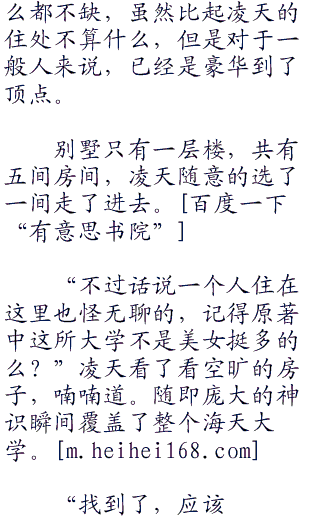 么都不缺，虽然比起凌天的
住处不算什么，但是对于一
般人来说，已经是豪华到了
顶点。
别墅只有一层楼，共有
五间房间，凌天随意的选了
一间走了进去。[百度一下
“有意思书院”]
“不过话说一个人住在
这里也怪无聊的，记得原著
中这所大学不是美女挺多的
么？”凌天看了看空旷的房
子，喃喃道。随即庞大的神
识瞬间覆盖了整个海天大
学。[m.heihei168.com]
“找到了，应该